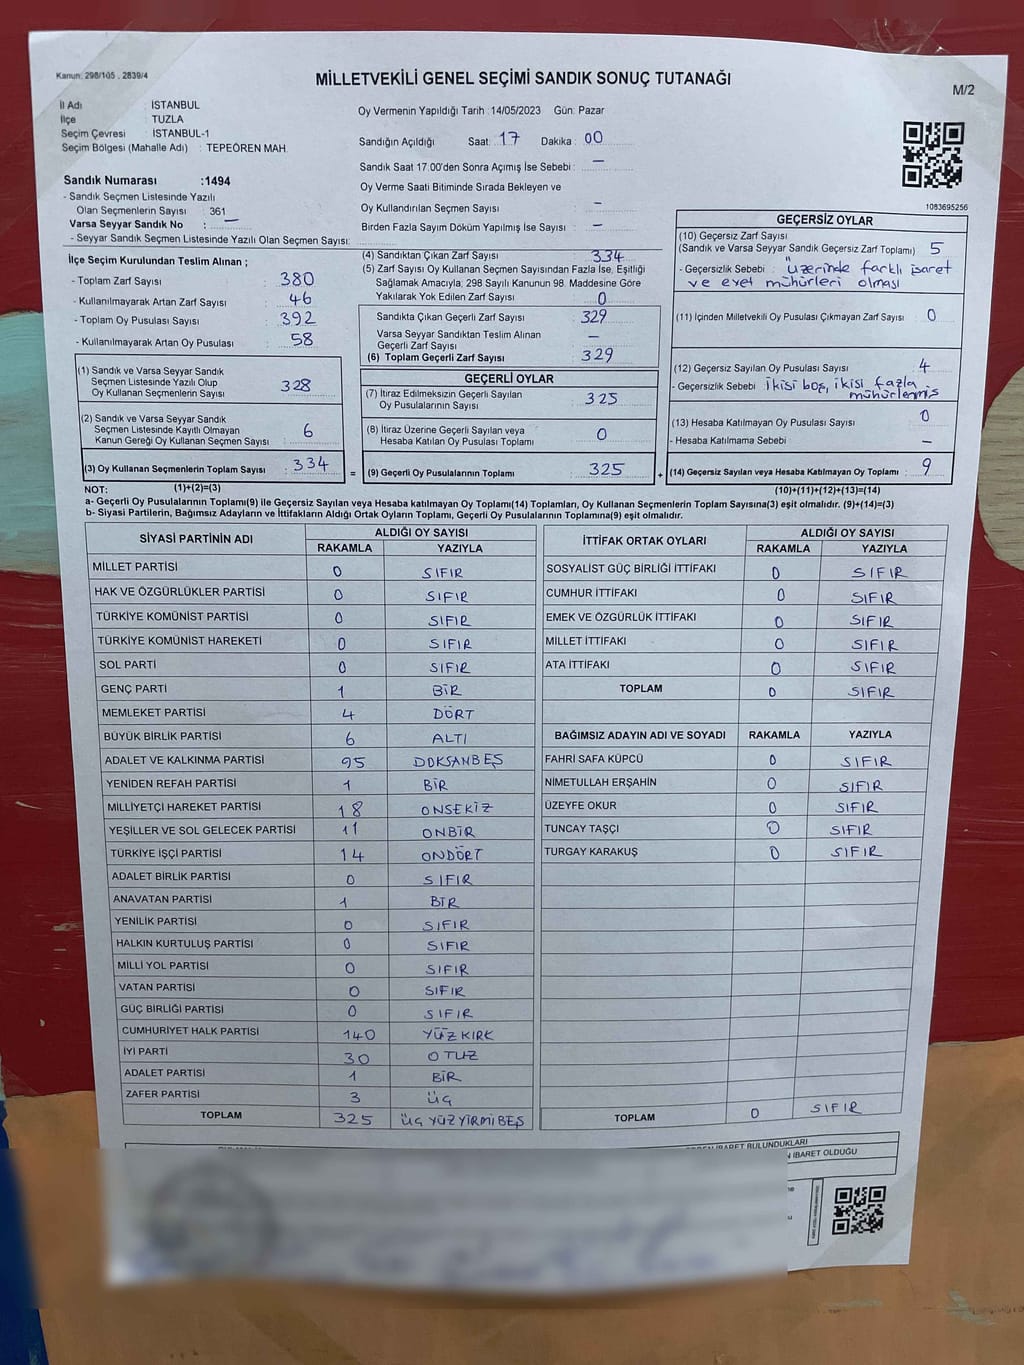 Kanun: 298/105 , 2839/4
MİLLETVEKİLİ GENEL SEÇİMİ SANDIK SONUÇ TUTANAĞI
M/2
İl Adı : İSTANBUL
İlçe : TUZLA
Seçim Çevresi : İSTANBUL-1
Seçim Bölgesi (Mahalle Adı) : TEPEÖREN MAH.
Oy Vermenin Yapıldığı Tarih :14/05/2023 Gün: Pazar
Sandığın Açıldığı Saat: 17 Dakika: 00
Sandık Saat 17.00'den Sonra Açımış İse Sebebi : –
Oy Verme Saati Bitiminde Sırada Bekleyen ve
Oy Kullandırılan Seçmen Sayısı : –
Birden Fazla Sayım Döküm Yapılmış İse Sayısı : –
Sandık Numarası :1494
- Sandık Seçmen Listesinde Yazılı
Olan Seçmenlerin Sayısı : 361
Varsa Seyyar Sandık No : –
- Seyyar Sandık Seçmen Listesinde Yazılı Olan Seçmen Sayısı:
1083695256
İlçe Seçim Kurulundan Teslim Alınan ;
- Toplam Zarf Sayısı : 380
- Kullanılmayarak Artan Zarf Sayısı : 46
- Toplam Oy Pusulası Sayısı : 392
- Kullanılmayarak Artan Oy Pusulası : 58
(1) Sandık ve Varsa Seyyar Sandık
Seçmen Listesinde Yazılı Olup
Oy Kullanan Seçmenlerin Sayısı : 328
(2) Sandık ve Varsa Seyyar Sandık
Seçmen Listesinde Kayıtlı Olmayan
Kanun Gereği Oy Kullanan Seçmen Sayısı : 6
(3) Oy Kullanan Seçmenlerin Toplam Sayısı : 334
(1)+(2)=(3)
(4) Sandıktan Çıkan Zarf Sayısı : 334
(5) Zarf Sayısı Oy Kullanan Seçmen Sayısından Fazla İse, Eşitliği
Sağlamak Amacıyla; 298 Sayılı Kanunun 98. Maddesine Göre
Yakılarak Yok Edilen Zarf Sayısı : 0
Sandıkta Çıkan Geçerli Zarf Sayısı : 329
Varsa Seyyar Sandıktan Teslim Alınan
Geçerli Zarf Sayısı : –
(6) Toplam Geçerli Zarf Sayısı : 329
GEÇERLİ OYLAR
(7) İtiraz Edilmeksizin Geçerli Sayılan
Oy Pusulalarının Sayısı : 325
(8) İtiraz Üzerine Geçerli Sayılan veya
Hesaba Katılan Oy Pusulası Toplamı : 0
= (9) Geçerli Oy Pusulalarının Toplamı : 325
GEÇERSİZ OYLAR
(10) Geçersiz Zarf Sayısı
(Sandık ve Varsa Seyyar Sandık Geçersiz Zarf Toplamı) : 5
- Geçersizlik Sebebi : üzerinde farklı işaret
ve evet mühürleri olması
(11) İçinden Milletvekili Oy Pusulası Çıkmayan Zarf Sayısı : 0
(12) Geçersiz Sayılan Oy Pusulası Sayısı : 4
- Geçersizlik Sebebi : ikisi boş, ikisi fazla
mühürlenmiş
(13) Hesaba Katılmayan Oy Pusulası Sayısı : 0
- Hesaba Katılmama Sebebi : –
+ (14) Geçersiz Sayılan veya Hesaba Katılmayan Oy Toplamı : 9
(10)+(11)+(12)+(13)=(14)
NOT:
a- Geçerli Oy Pusulalarının Toplamı(9) ile Geçersiz Sayılan veya Hesaba katılmayan Oy Toplamı(14) Toplamları, Oy Kullanan Seçmenlerin Toplam Sayısına(3) eşit olmalıdır. (9)+(14)=(3)
b- Siyasi Partilerin, Bağımsız Adayların ve İttifakların Aldığı Ortak Oyların Toplamı, Geçerli Oy Pusulalarının Toplamına(9) eşit olmalıdır.
SİYASİ PARTİNİN ADI ALDIĞI OY SAYISI
RAKAMLA YAZIYLA
MİLLET PARTİSİ 0 SIFIR
HAK VE ÖZGÜRLÜKLER PARTİSİ 0 SIFIR
TÜRKİYE KOMÜNİST PARTİSİ 0 SIFIR
TÜRKİYE KOMÜNİST HAREKETİ 0 SIFIR
SOL PARTİ 0 SIFIR
GENÇ PARTİ 1 BİR
MEMLEKET PARTİSİ 4 DÖRT
BÜYÜK BİRLİK PARTİSİ 6 ALTI
ADALET VE KALKINMA PARTİSİ 95 DOKSANBEŞ
YENİDEN REFAH PARTİSİ 1 BİR
MİLLİYETÇİ HAREKET PARTİSİ 18 ONSEKİZ
YEŞİLLER VE SOL GELECEK PARTİSİ 11 ONBİR
TÜRKİYE İŞÇİ PARTİSİ 14 ONDÖRT
ADALET BİRLİK PARTİSİ 0 SIFIR
ANAVATAN PARTİSİ 1 BİR
YENİLİK PARTİSİ 0 SIFIR
HALKIN KURTULUŞ PARTİSİ 0 SIFIR
MİLLİ YOL PARTİSİ 0 SIFIR
VATAN PARTİSİ 0 SIFIR
GÜÇ BİRLİĞİ PARTİSİ 0 SIFIR
CUMHURİYET HALK PARTİSİ 140 YÜZKIRK
İYİ PARTİ 30 OTUZ
ADALET PARTİSİ 1 BİR
ZAFER PARTİSİ 3 ÜÇ
TOPLAM 325 ÜÇYÜZYİRMİBEŞ
İTTİFAK ORTAK OYLARI ALDIĞI OY SAYISI
RAKAMLA YAZIYLA
SOSYALİST GÜÇ BİRLİĞİ İTTİFAKI 0 SIFIR
CUMHUR İTTİFAKI 0 SIFIR
EMEK VE ÖZGÜRLÜK İTTİFAKI 0 SIFIR
MİLLET İTTİFAKI 0 SIFIR
ATA İTTİFAKI 0 SIFIR
TOPLAM 0 SIFIR
BAĞIMSIZ ADAYIN ADI VE SOYADI RAKAMLA YAZIYLA
FAHRİ SAFA KÜPCÜ 0 SIFIR
NİMETULLAH ERŞAHİN 0 SIFIR
ÜZEYFE OKUR 0 SIFIR
TUNCAY TAŞÇI 0 SIFIR
TURGAY KARAKUŞ 0 SIFIR
TOPLAM 0 SIFIR
İBARET BULUNDUKLARI
İBARET OLDUĞU